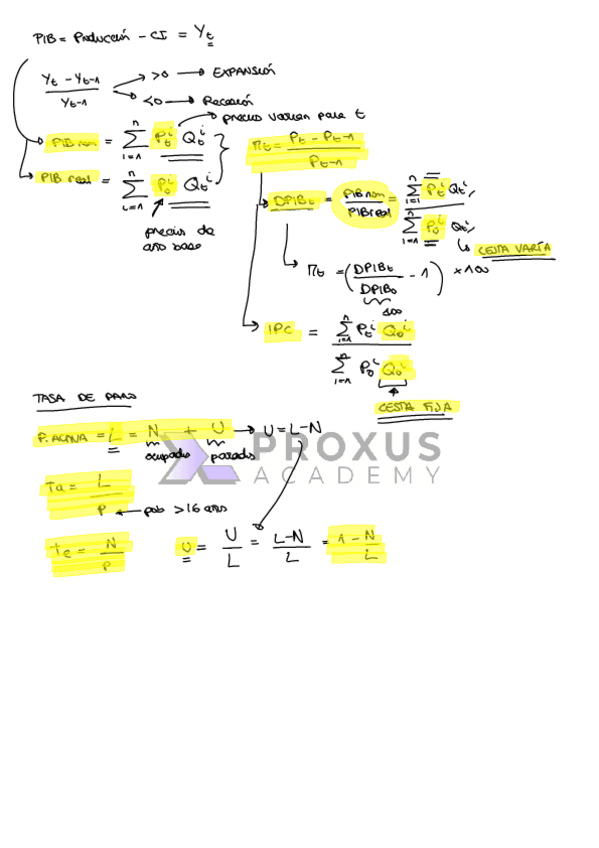 PIB = Producción - CI = Yt
Yt - Yt-1 / Yt-1
>0 → EXPANSIÓN
<0 → Recesión
precios varían para t
PIB nom = Σ i=1 n Pt^i Qt^i
PIB real = Σ i=1 n P0^i Qt^i
precios de año base
Πt = Pt - Pt-1 / Pt-1
DPIBt = PIB nom / PIB real = Σ i=1 n Pt^i Qt^i / Σ i=1 n P0^i Qt^i
CESTA VARÍA
Πt = (DPIBt / DPIB0 - 1) x 100
100
IPC = Σ i=1 n Pt^i Q0^i / Σ i=1 n P0^i Q0^i
CESTA FIJA
TASA DE PARO
P. ACTIVA = L = N + U → U = L-N
ocupados parados
PROXUS
ACADEMY
Ta = L / P ← pob >16 años
Te = N / P
u = U / L = L-N / L = 1 - N / L